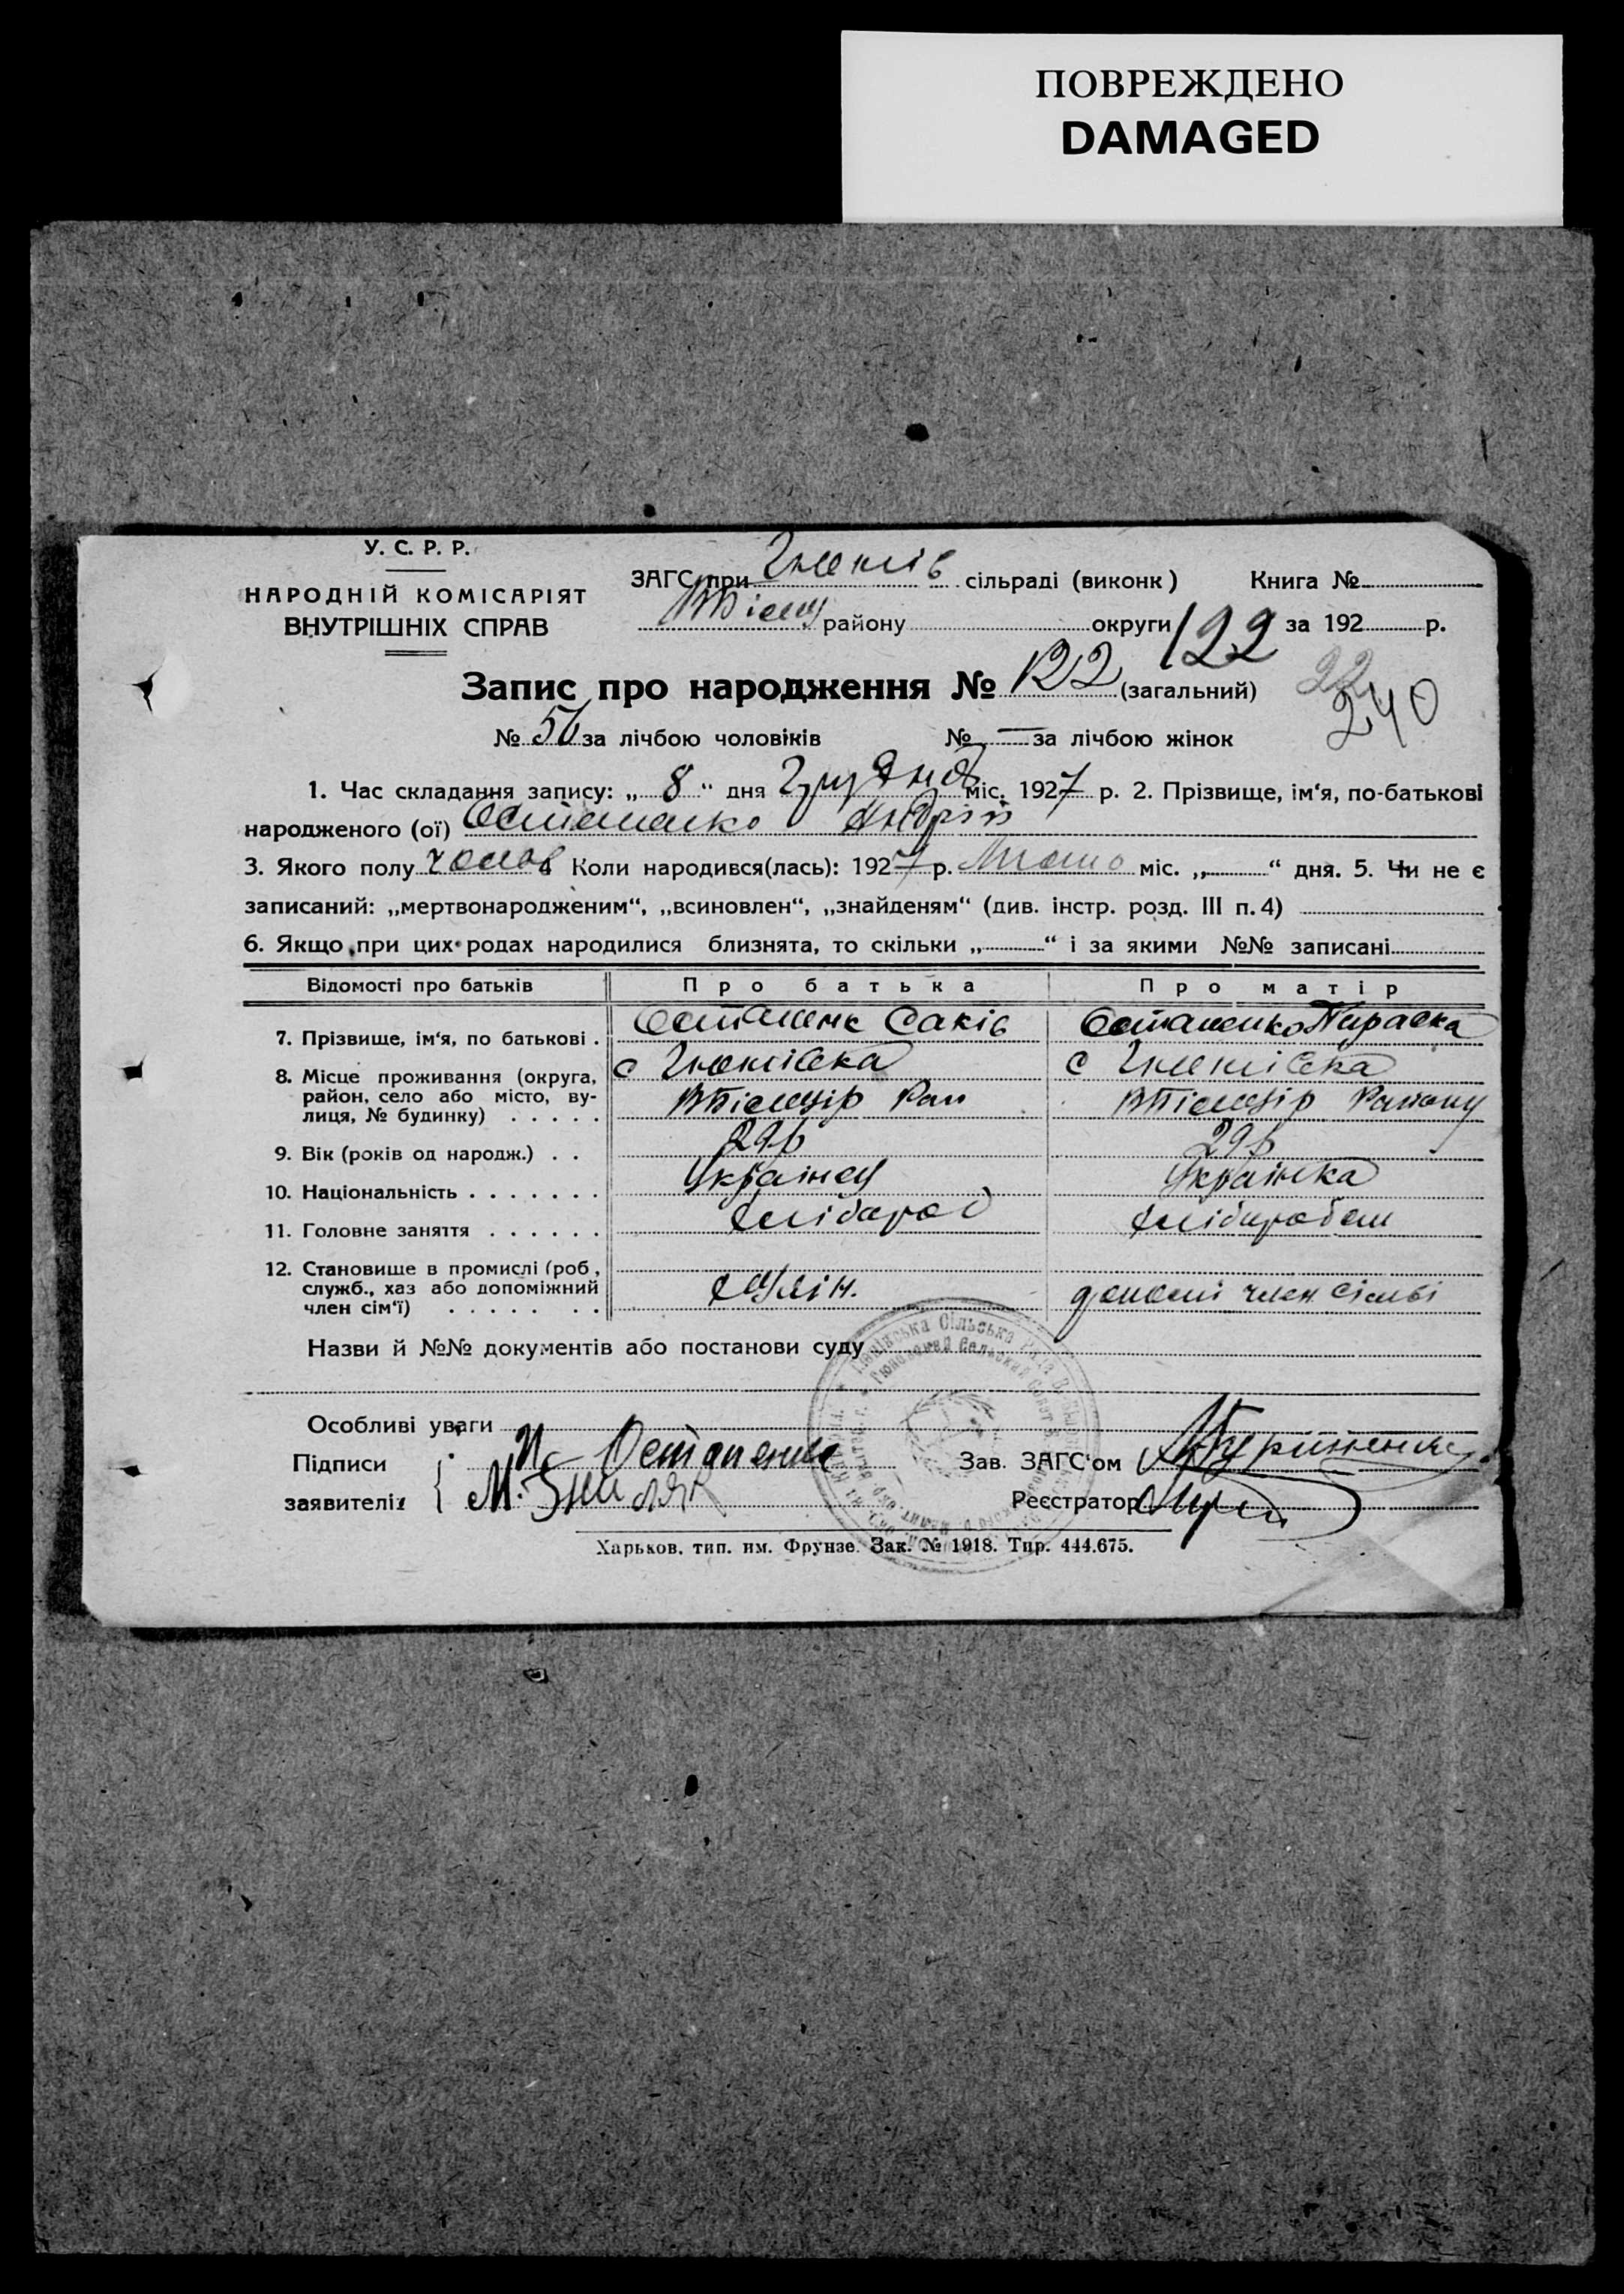 ПОВРЕЖДЕНО
DAMAGED
У. С. Р. Р.
НАРОДНІЙ КОМІСАРІЯТ
ВНУТРІШНІХ СПРАВ
ЗАГС при сільраді (виконк) Книга №
району округи 122 за 192 р.
Запис про народження № 122 (загальний)
22
240
№ 56 за лічбою чоловіків № — за лічбою жінок
1. Час складання запису: „ 8 “ дня Грудня міс. 1927 р. 2. Прізвище, ім‘я, по-батькові
народженого (ої) Остапенко Андрій
3. Якого полу чолов 4 Коли народився(лась): 1927 р. міс. „ “ дня. 5. Чи не є
записаний: „мертвонародженим“, „всиновлен“, „знайденям“ (див. інстр. розд. III п. 4)
6. Якщо при цих родах народилися близнята, то скільки „ “ і за якими №№ записані
Відомості про батьків Про батька Про матір
7. Прізвище, ім‘я, по батькові . Остапенк Саків Остапенко Параска
8. Місце проживання (округа, с Гнотівка с Гнотівка
район, село або місто, ву-
лиця, № будинку) . . . . .
9. Вік (років од народж.) . . 29р 29р
10. Національність . . . . . . . Українец Українка
11. Головне заняття . . . . . . хлібороб
12. Становище в промислі (роб,
служб., хаз або допоміжний член сімьі
член сім‘ї) . . . . . . .
Назви й №№ документів або постанови суду
Особливі уваги
Підписи П Остапенко Зав. ЗАГС‘ом
заявителів М. Реєстратор
Харьков. тип. им. Фрунзе. Зак. № 1918. Тир. 444.675.